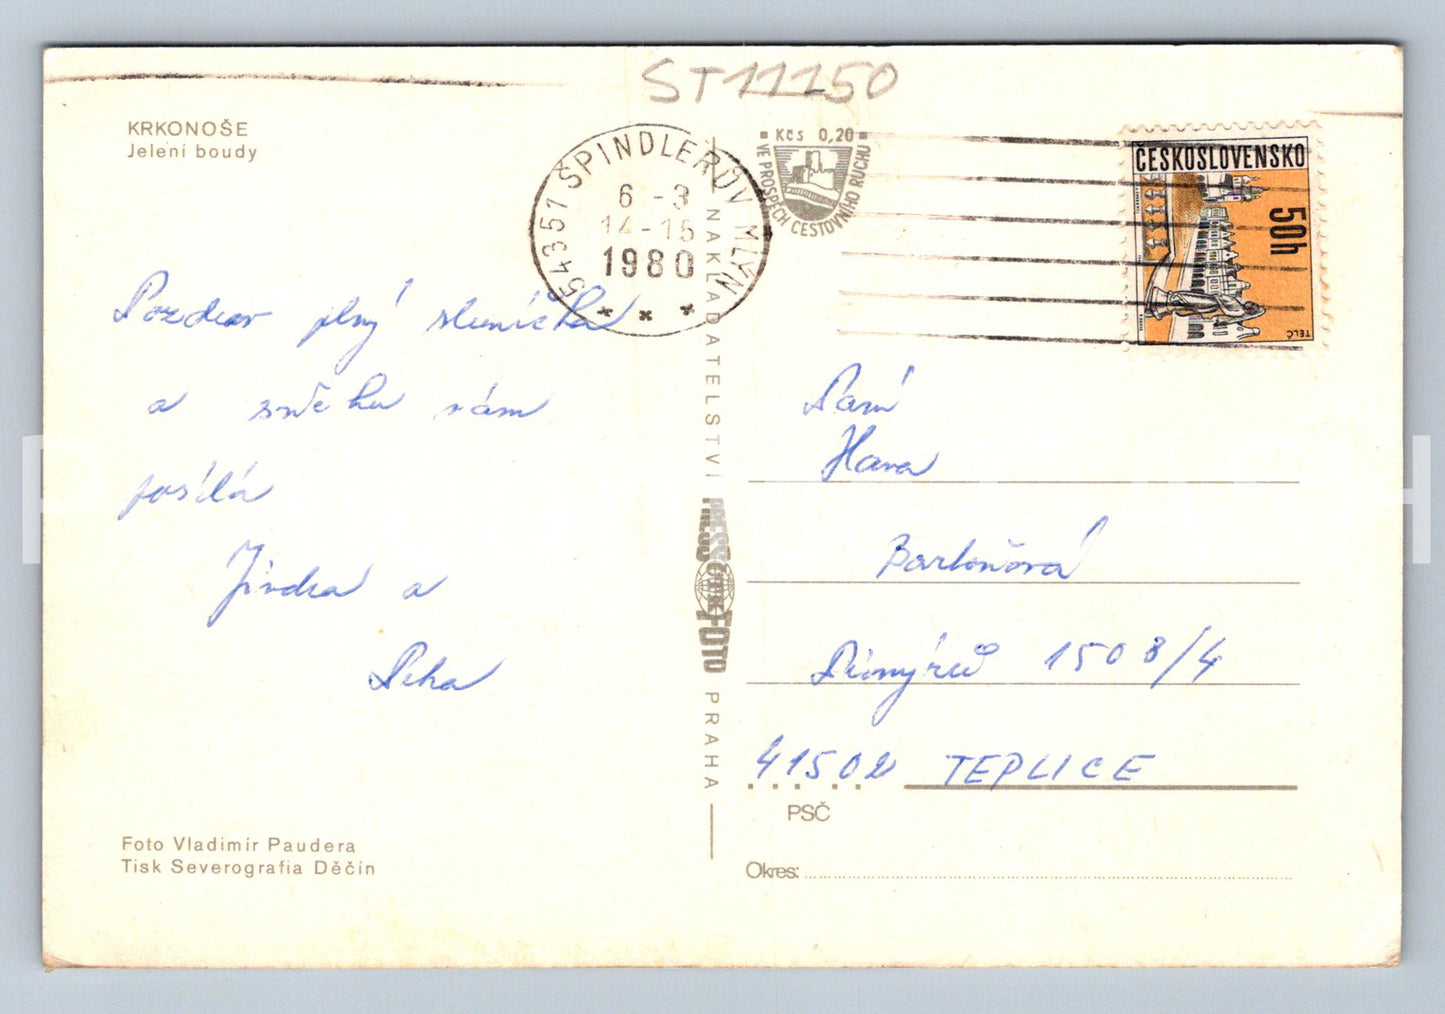 ST11150
KRKONOŠE
Jelení boudy
54351 ŠPINDLERŮV MLÝN
6 -3
14-15
1980
Kčs 0,20
VE PROSPĚCH CESTOVNÍHO RUCHU
ČESKOSLOVENSKO
50h
TELČ
Pozdrav plný sluníčka
a sněhu vám
posílá
Jindra a
NAKLADATELSTVÍ
PRESSFOTO
PRAHA
Paní
Hana
Bartoňová
1508/4
41502 TEPLICE
PSČ
Okres:
Foto Vladimír Paudera
Tisk Severografia Děčín